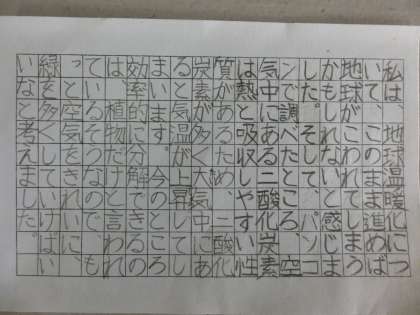 私は、地球温暖化につ
いて、このまま進めば
地球がこわれてしまう
かもしれないと感じま
した。そして、パソコ
ンで調べたところ、空
気中にある二酸化炭素
は熱を吸収しやすい性
質があるため、二酸化
炭素が多く大気中にあ
ると気温が上昇してし
まいます。今のところ
効率的に分解できるの
は、植物だけと言われ
ているそうなので、も
っと空気をきれいに、
緑を多くしていけばい
いなと考えました。